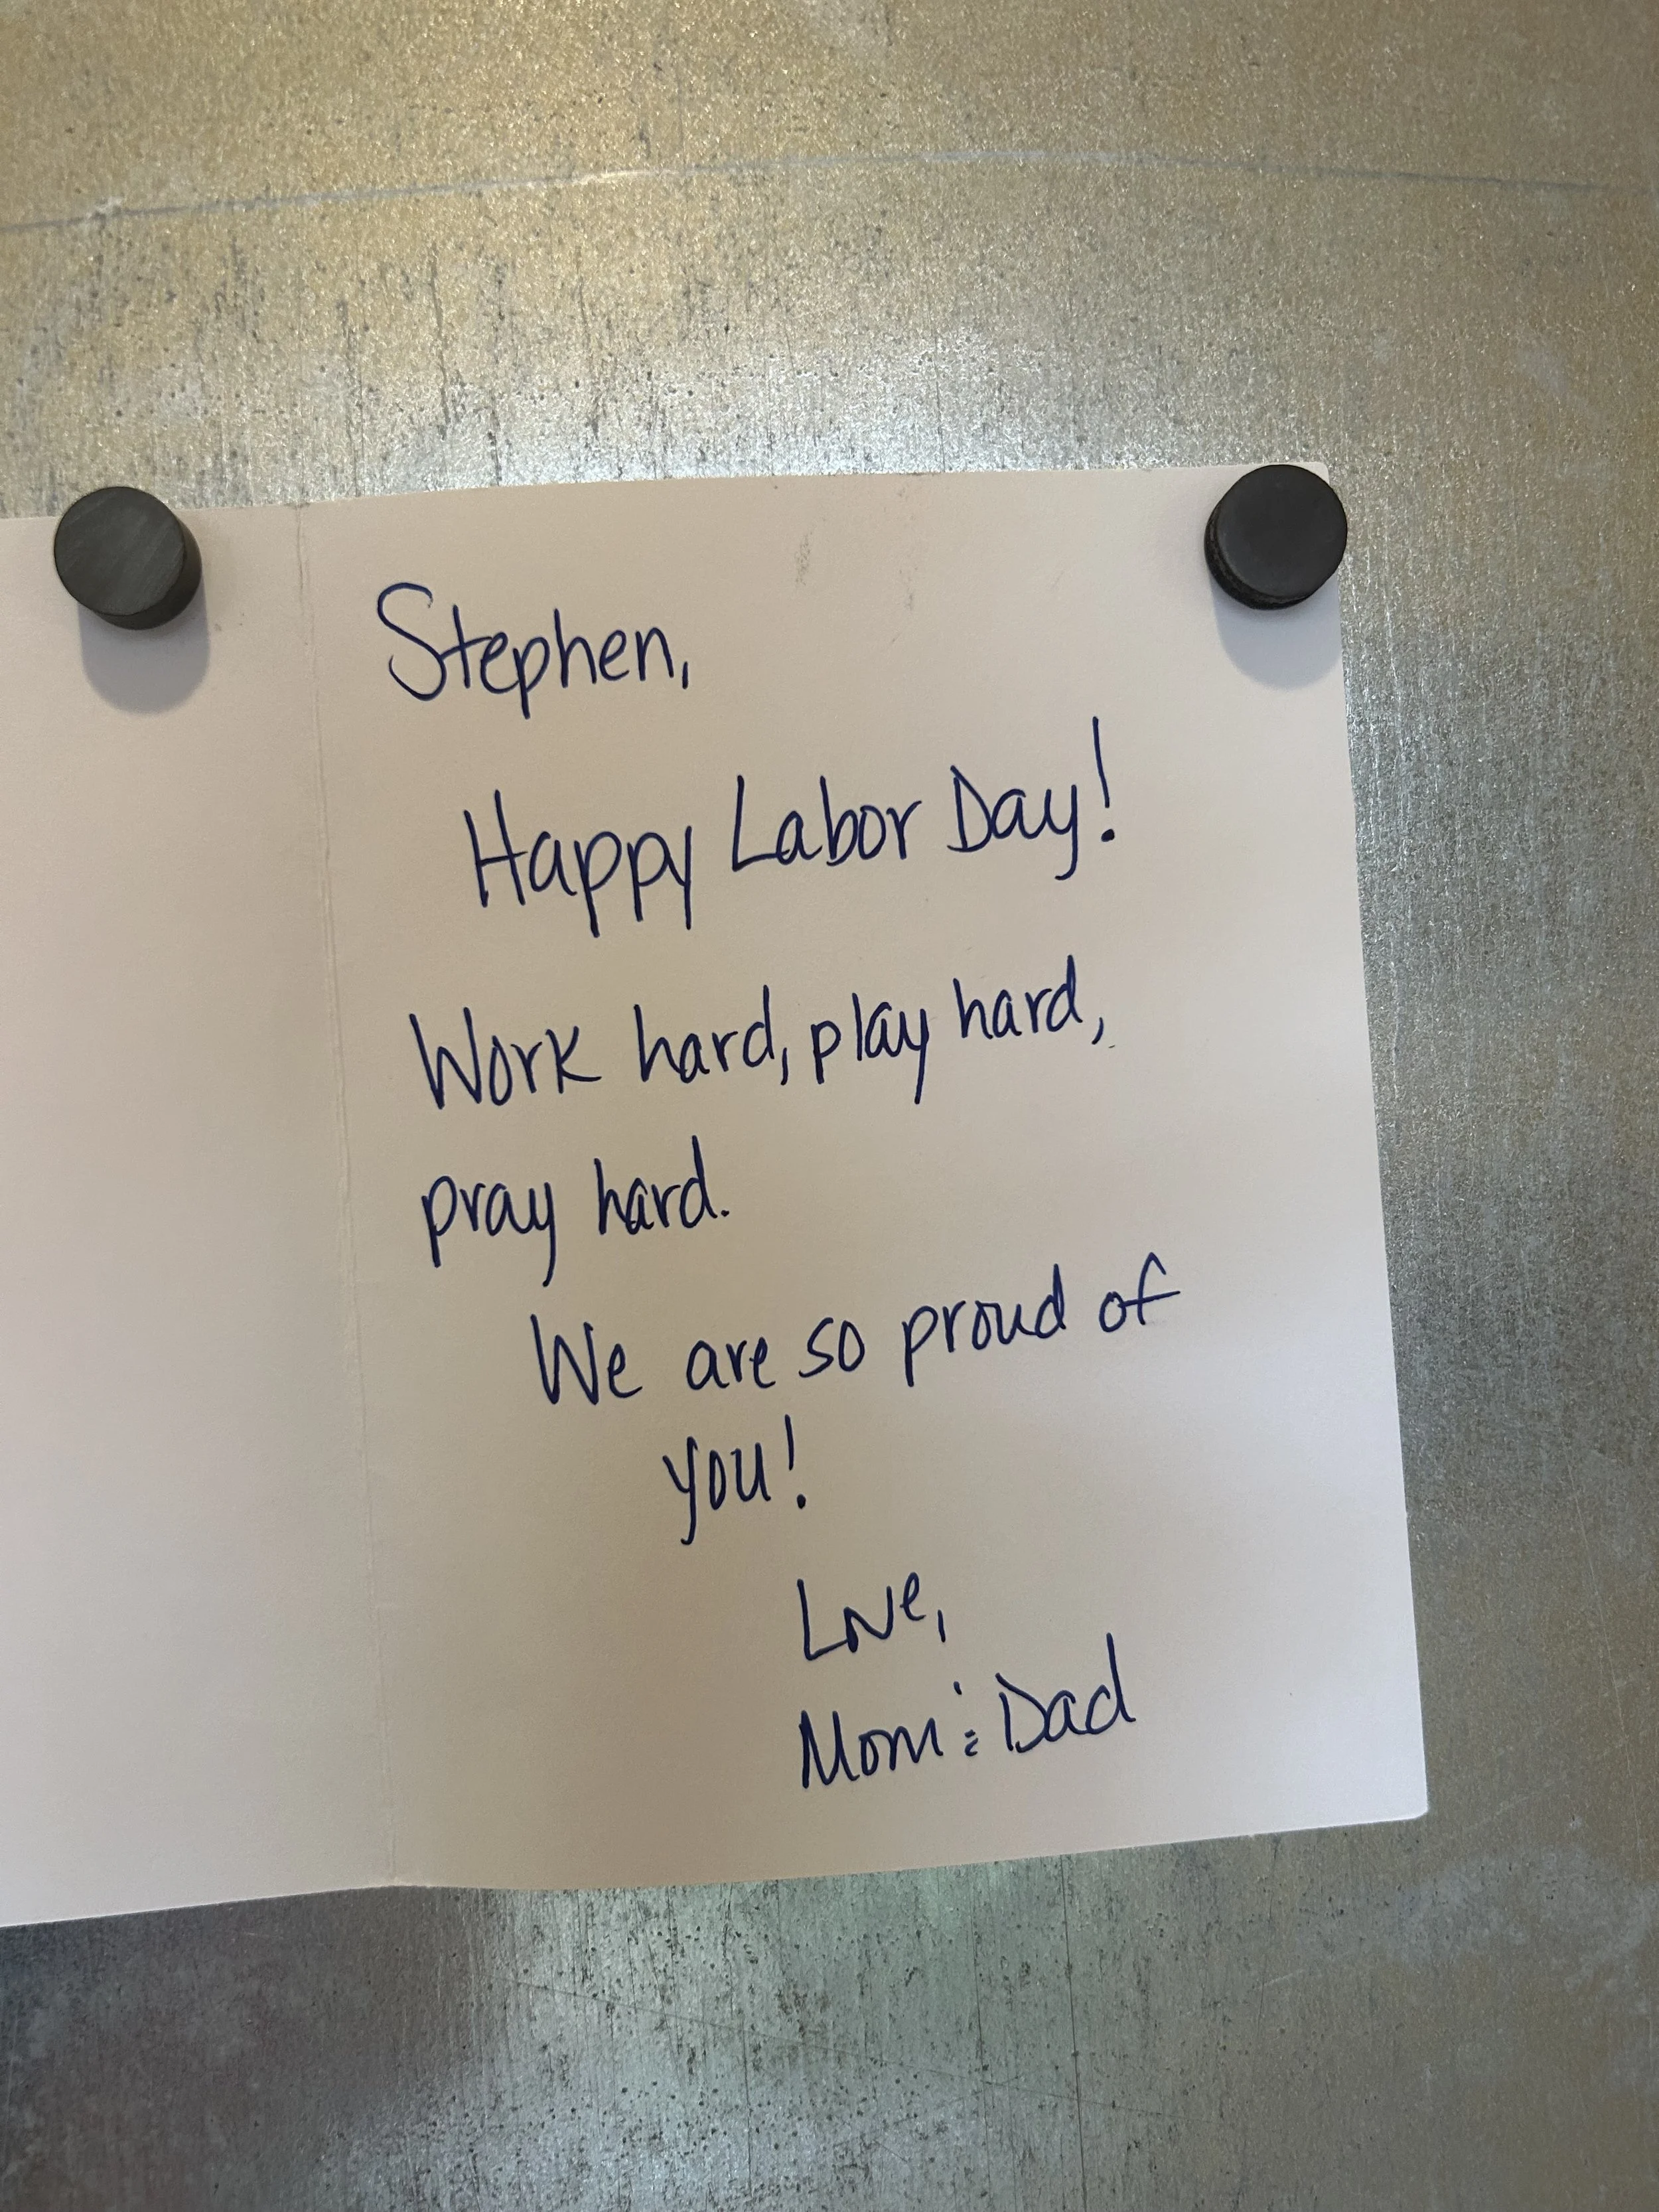 Stephen,
Happy Labor Day!
Work hard, play hard,
pray hard.
We are so proud of
you!
Love,
Mom & Dad